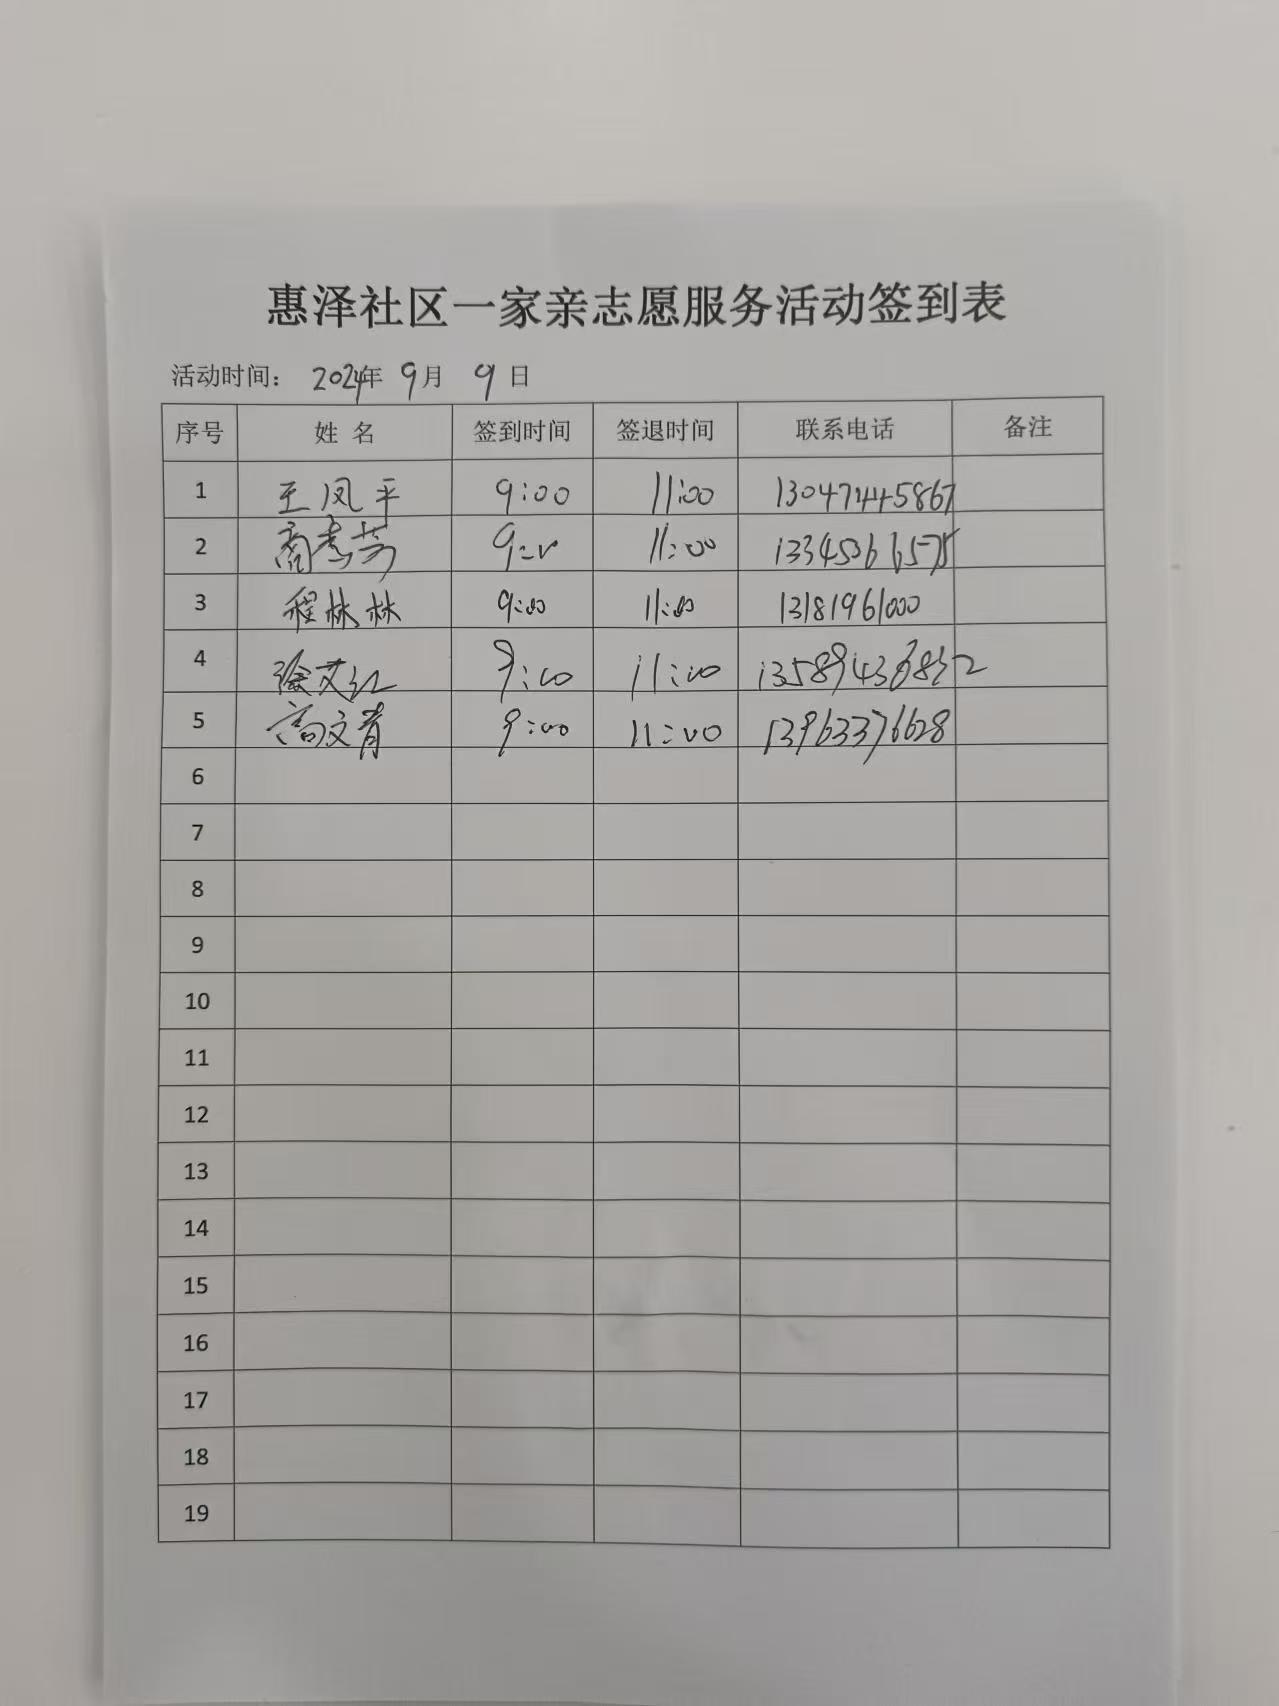 惠泽社区一家亲志愿服务活动签到表
活动时间： 2024年 9月 9日
序号 姓名 签到时间 签退时间 联系电话 备注
1 王凤平 9:00 11:00 13047445867
2 11:00
3 程林林 9:00 11:00 13181961000
4 徐艾红 9:00 11:00
5 高文青 9:00 11:00 13963376628
6
7
8
9
10
11
12
13
14
15
16
17
18
19